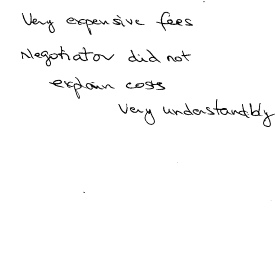 Very expensive fees
Negotiator did not
explain costs
very understandbly